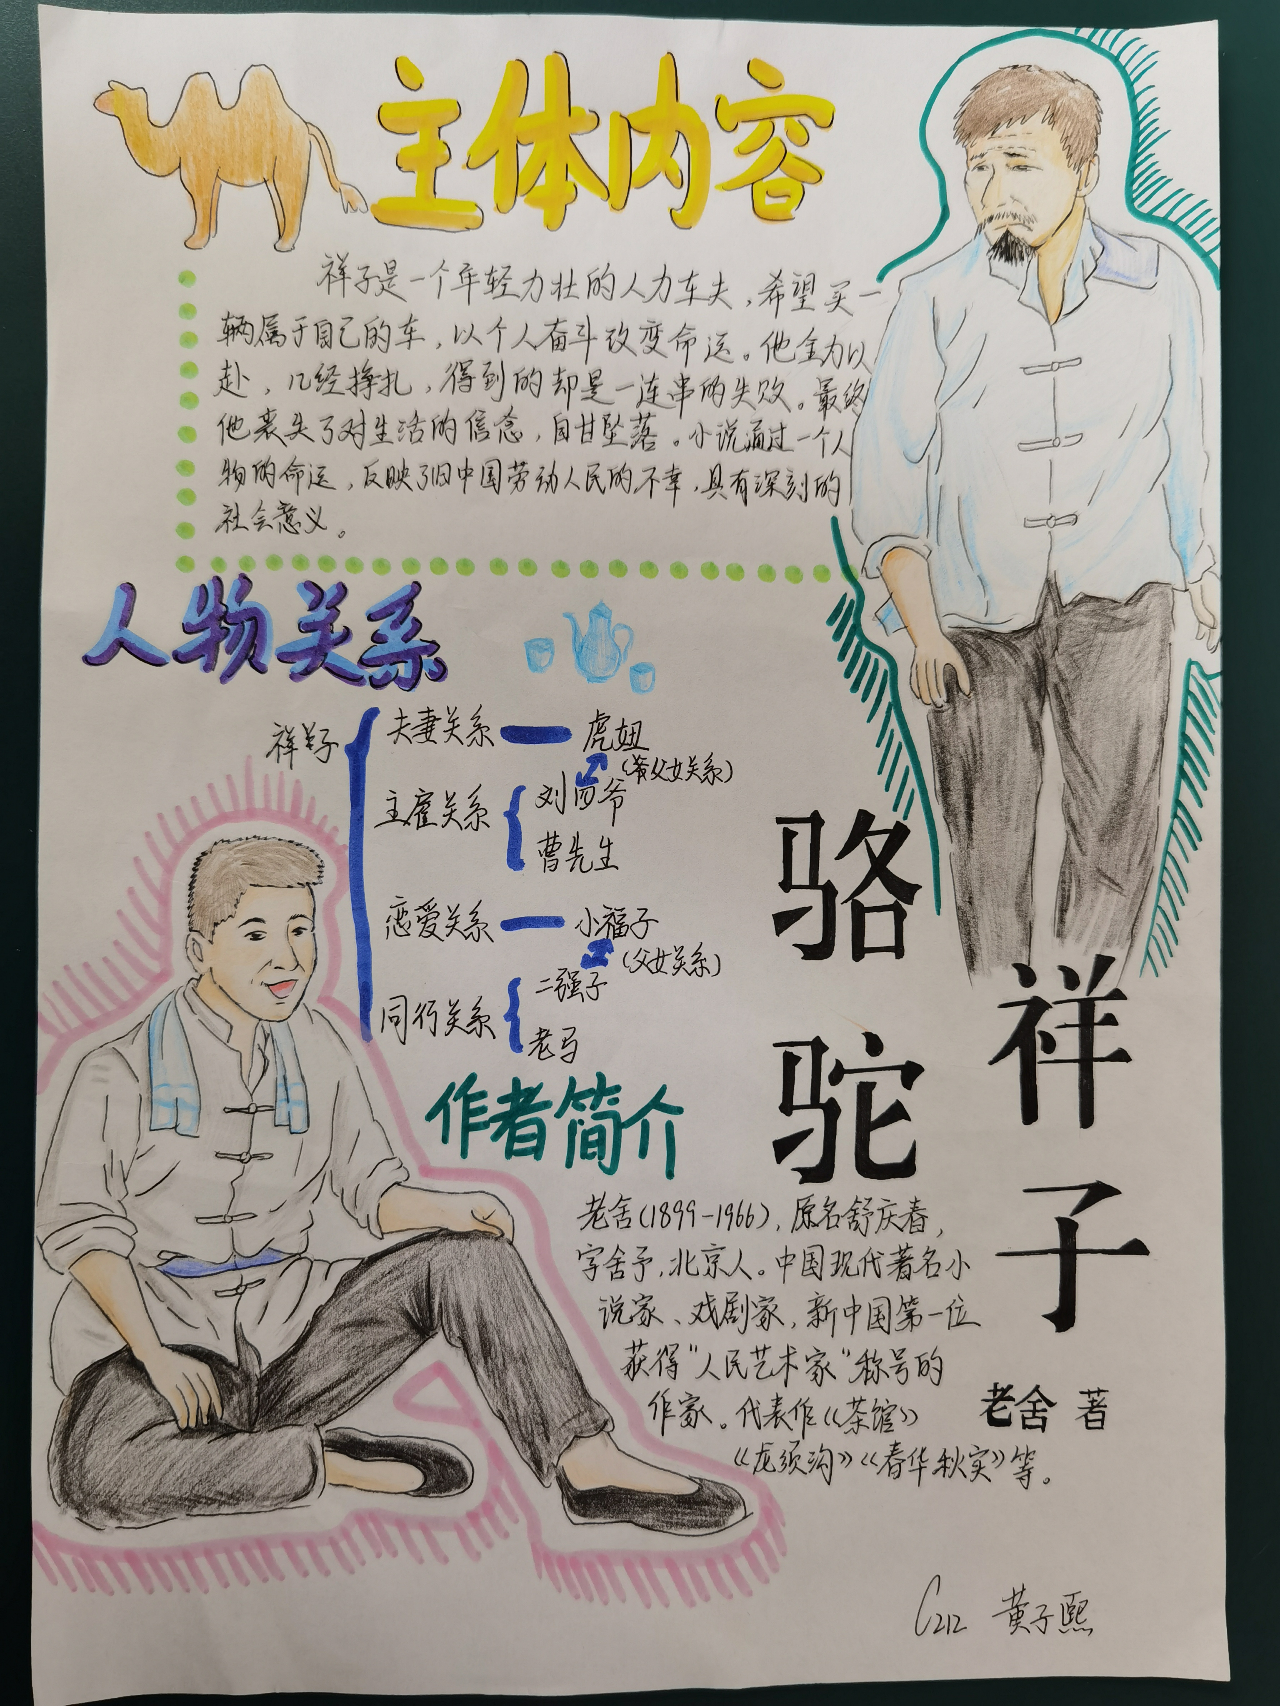 主体内容
祥子是一个年轻力壮的人力车夫，希望买一
辆属于自己的车，以个人奋斗改变命运。他全力以
赴，几经挣扎，得到的却是一连串的失败。最终
他丧失了对生活的信念，自甘坠落。小说通过一个人
物的命运，反映了旧中国劳动人民的不幸，具有深刻的
社会意义。
人物关系
祥子
夫妻关系
虎妞
(父女关系)
主雇关系
刘四爷
曹先生
恋爱关系
小福子
(父女关系)
同行关系
二强子
老马
骆驼
祥子
老舍 著
作者简介
老舍(1899-1966)，原名舒庆春，
字舍予，北京人。中国现代著名小
说家、戏剧家，新中国第一位
获得"人民艺术家"称号的
作家。代表作《茶馆》
《龙须沟》《春华秋实》等。
C212 黄子熙